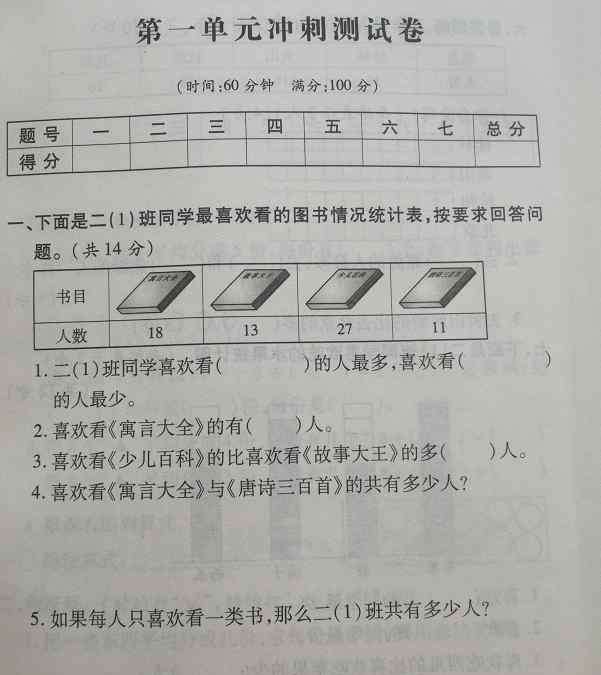 第一单元冲刺测试卷
(时间:60分钟 满分:100分)
题号 一 二 三 四 五 六 七 总分
得分
一、下面是二(1)班同学最喜欢看的图书情况统计表,按要求回答问
题。(共14分)
书目 寓言大全 故事大王 少儿百科 唐诗三百首
人数 18 13 27 11
1.二(1)班同学喜欢看( )的人最多,喜欢看( )
的人最少。
2.喜欢看《寓言大全》的有( )人。
3.喜欢看《少儿百科》的比喜欢看《故事大王》的多( )人。
4.喜欢看《寓言大全》与《唐诗三百首》的共有多少人?
5.如果每人只喜欢看一类书,那么二(1)班共有多少人?